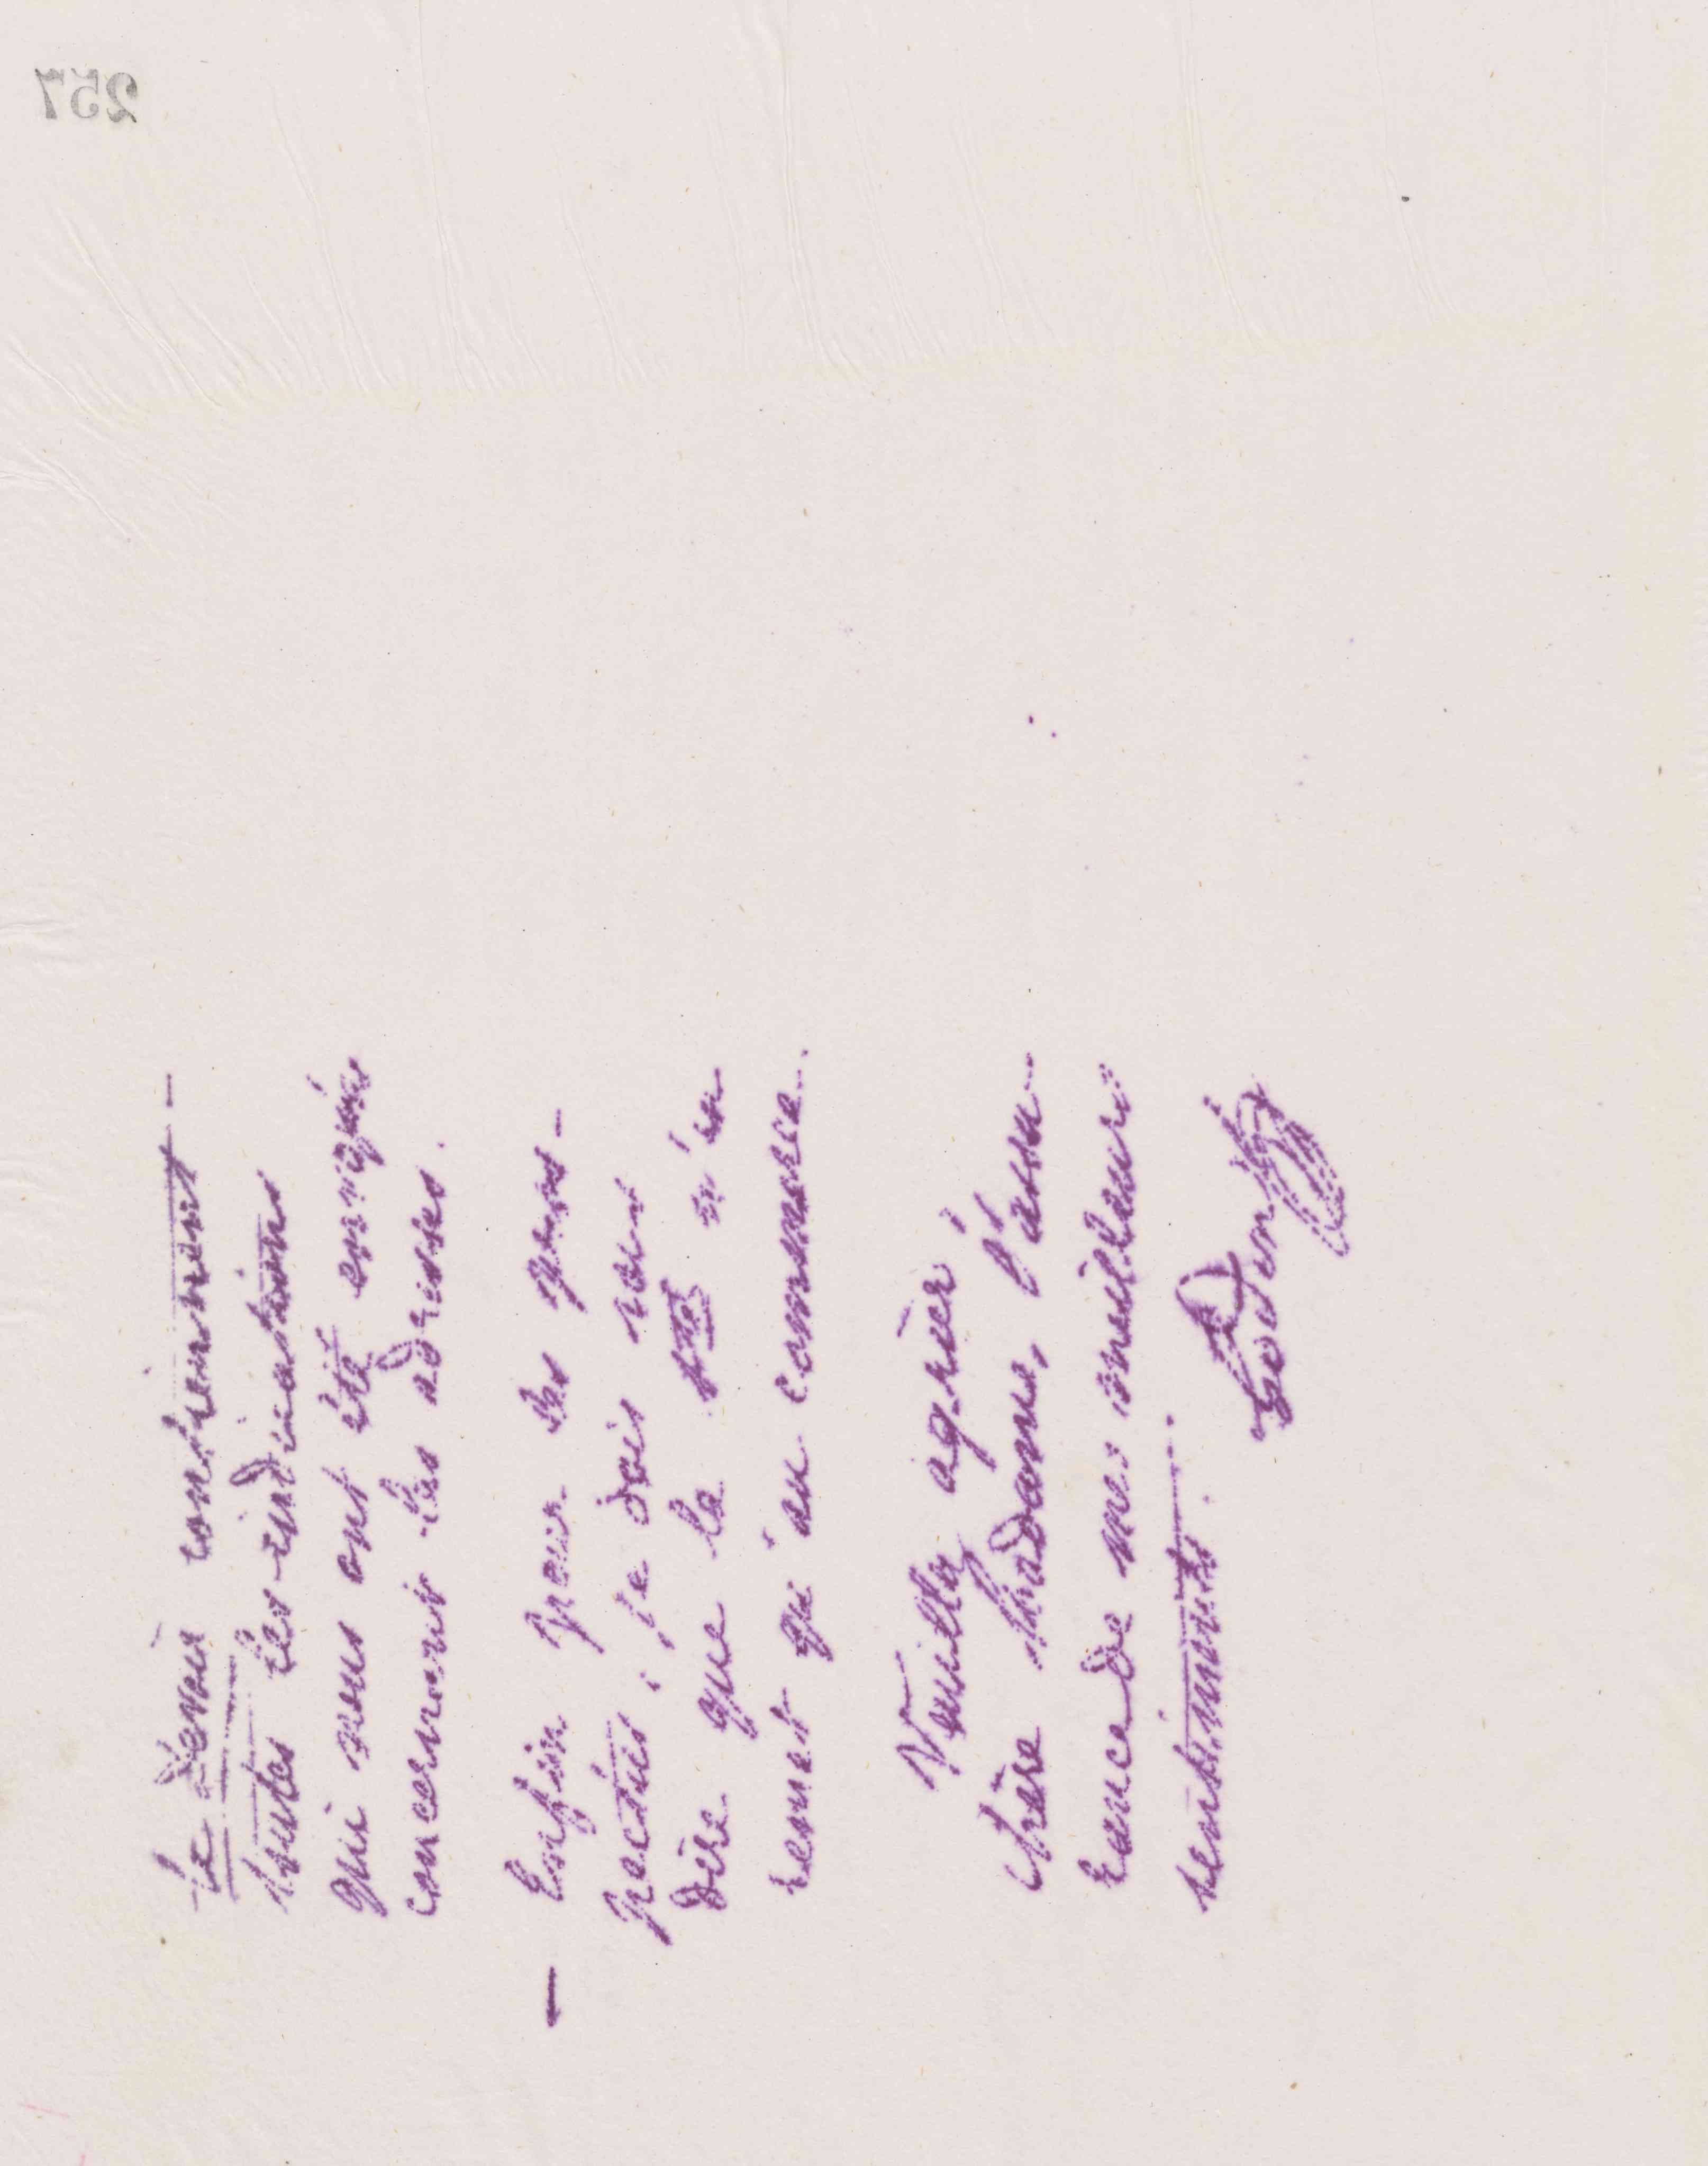 257
Le Devoir contiennent
toutes les indications
qui nous ont été envoyées
concernant les adresses.
— Enfin pour les pros-
pectus, je dois vous
dire que la Sté n'en
remet qu'au commerce.
Veuillez agréer
chère Madame, l'assu-
rance de mes meilleurs
sentiments.
Godin